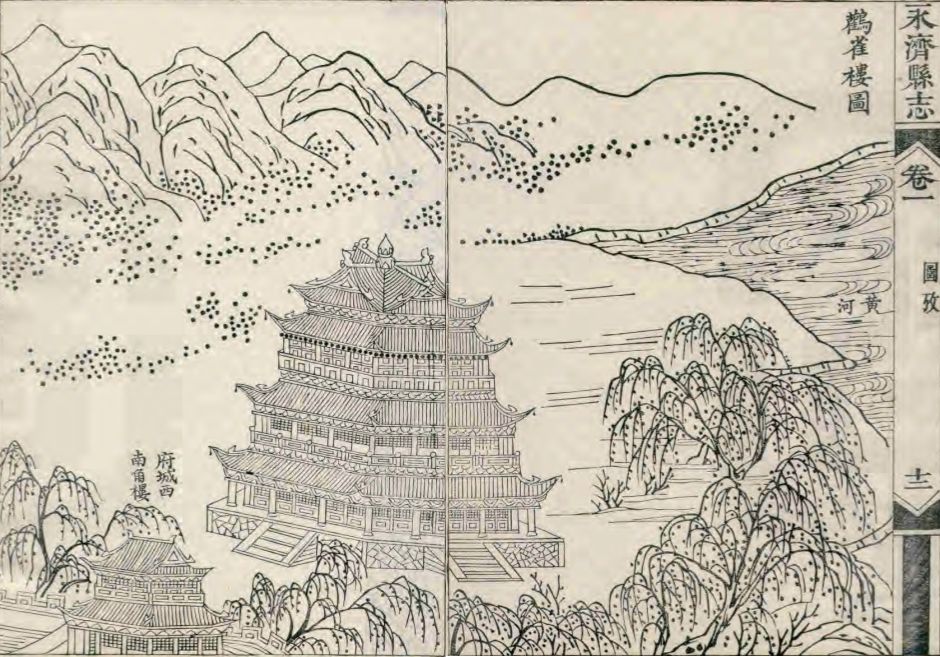 永濟縣志
卷一
圖攷
十一
鸛雀樓圖
黃
河
府城西
南角樓